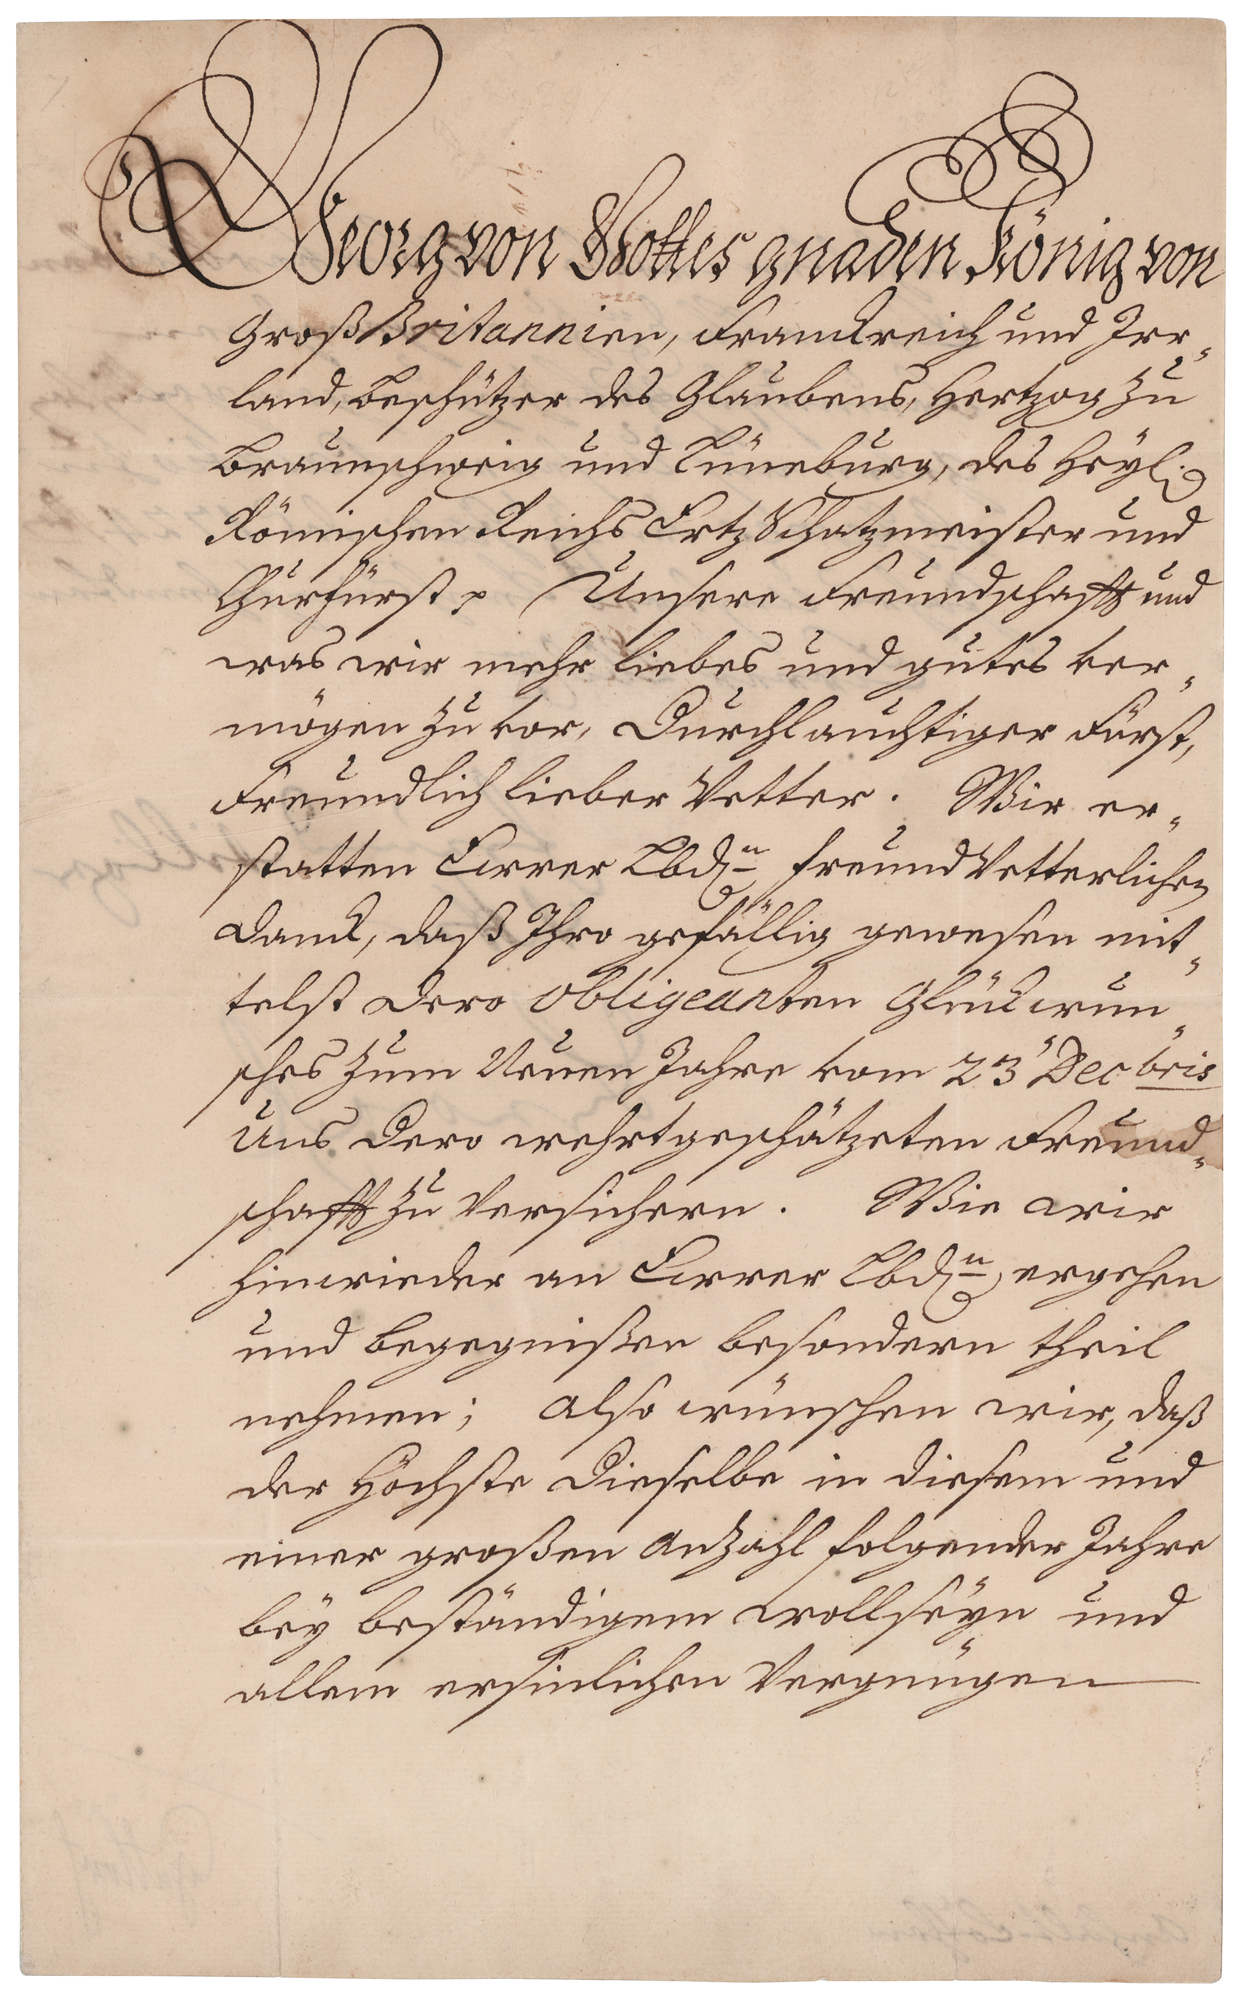 Georg von Gottes gnaden König von
Groß Britannien, Franckreich und Irr-
land, Beschützer des Glaubens, Hertzog zu
Braunschweig und Lüneburg, des Heyl.
Römischen Reichs Ertz Schatzmeister und
Churfürst p Unsere Freundschafft und
was wir mehr liebes und gutes ver-
mögen zu vor, Durchlauchtiger Fürst,
Freundlich lieber Vetter. Wir er-
statten Eurer Lbdn freund Vetterlichen
Danck, daß Ihro gefällig gewesen mit-
telst Dero obligeanten Glückwun-
sches zum Neuen Jahre vom 23 Decbris
Uns Dero wehrtgeschätzeten Freund-
schafft zu versichern. Wie wir
hinwieder an Eurer Lbdn ergehen
und Begegnißen besondern theil
nehmen; Also wünschen wir, daß
der Höchste Dieselbe in diesem und
einer großen Anzahl folgender Jahre
bey beständigem wollseyn und
allem ersinlichen Vergnügen